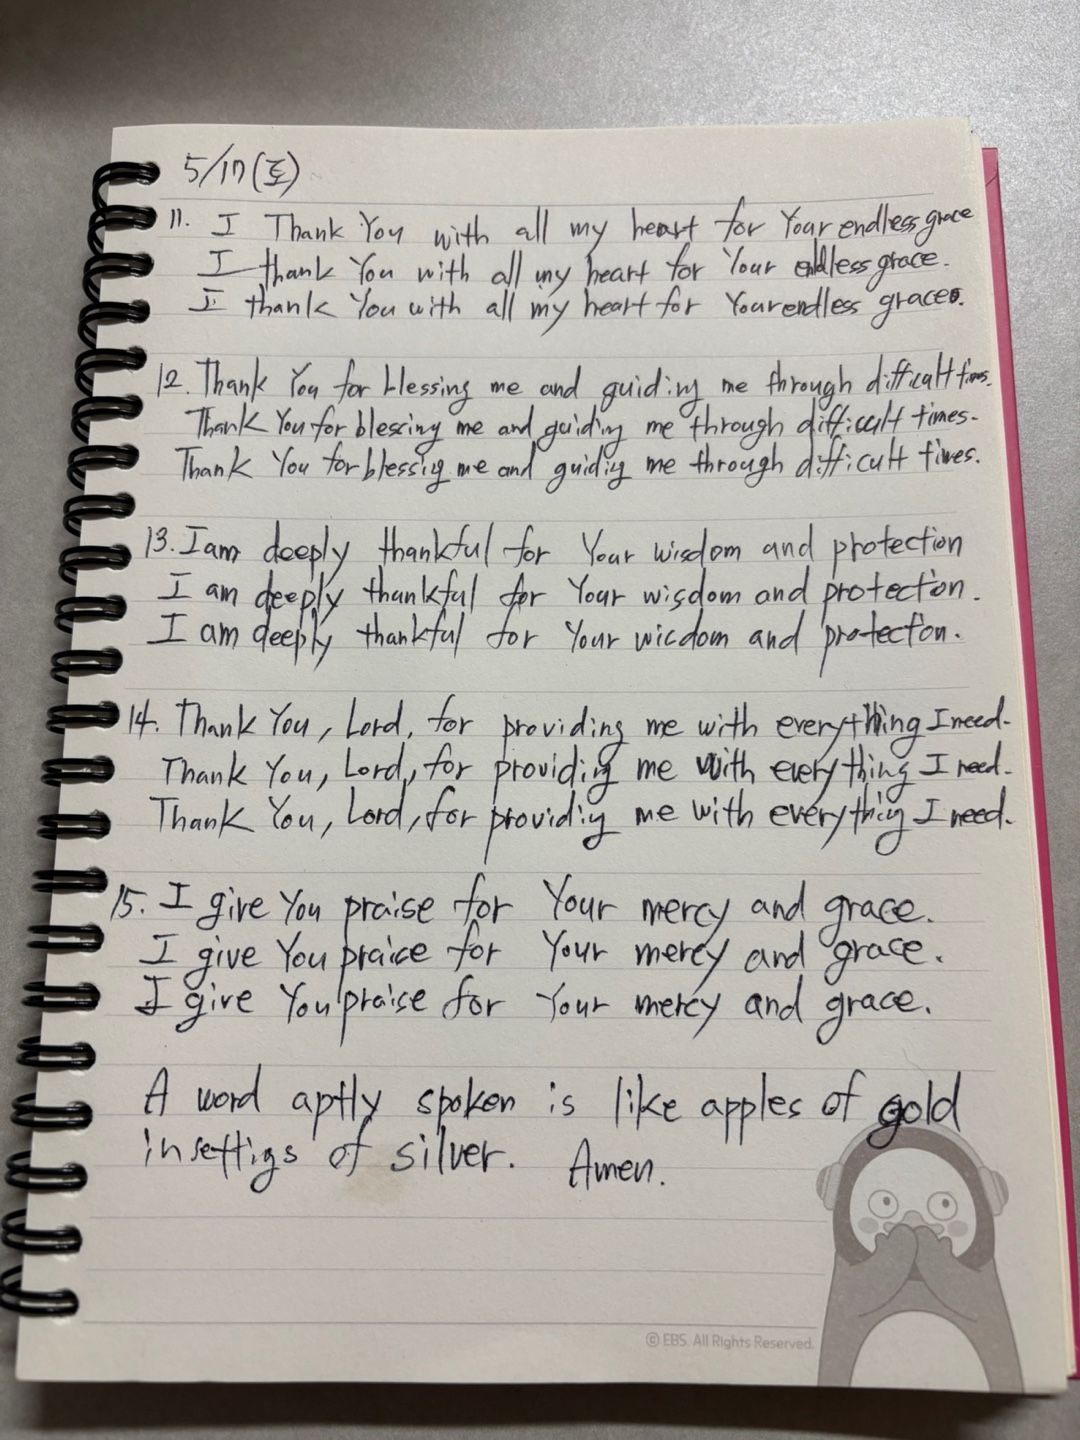 5/17(토)
11. I Thank You with all my heart for Your endless grace
I thank You with all my heart for Your endless grace.
I thank You with all my heart for Your endless grace.
12. Thank You for blessing me and guiding me through difficult times.
Thank You for blessing me and guiding me through difficult times.
Thank You for blessing me and guiding me through difficult times.
13. I am deeply thankful for Your wisdom and protection
I am deeply thankful for Your wisdom and protection.
I am deeply thankful for Your wisdom and protection.
14. Thank You, Lord, for providing me with everything I need.
Thank You, Lord, for providing me with everything I need.
Thank You, Lord, for providing me with everything I need.
15. I give You praise for Your mercy and grace.
I give You praise for Your mercy and grace.
I give You praise for Your mercy and grace.
A word aptly spoken is like apples of gold
in settigs of silver. Amen.
© EBS. All Rights Reserved.